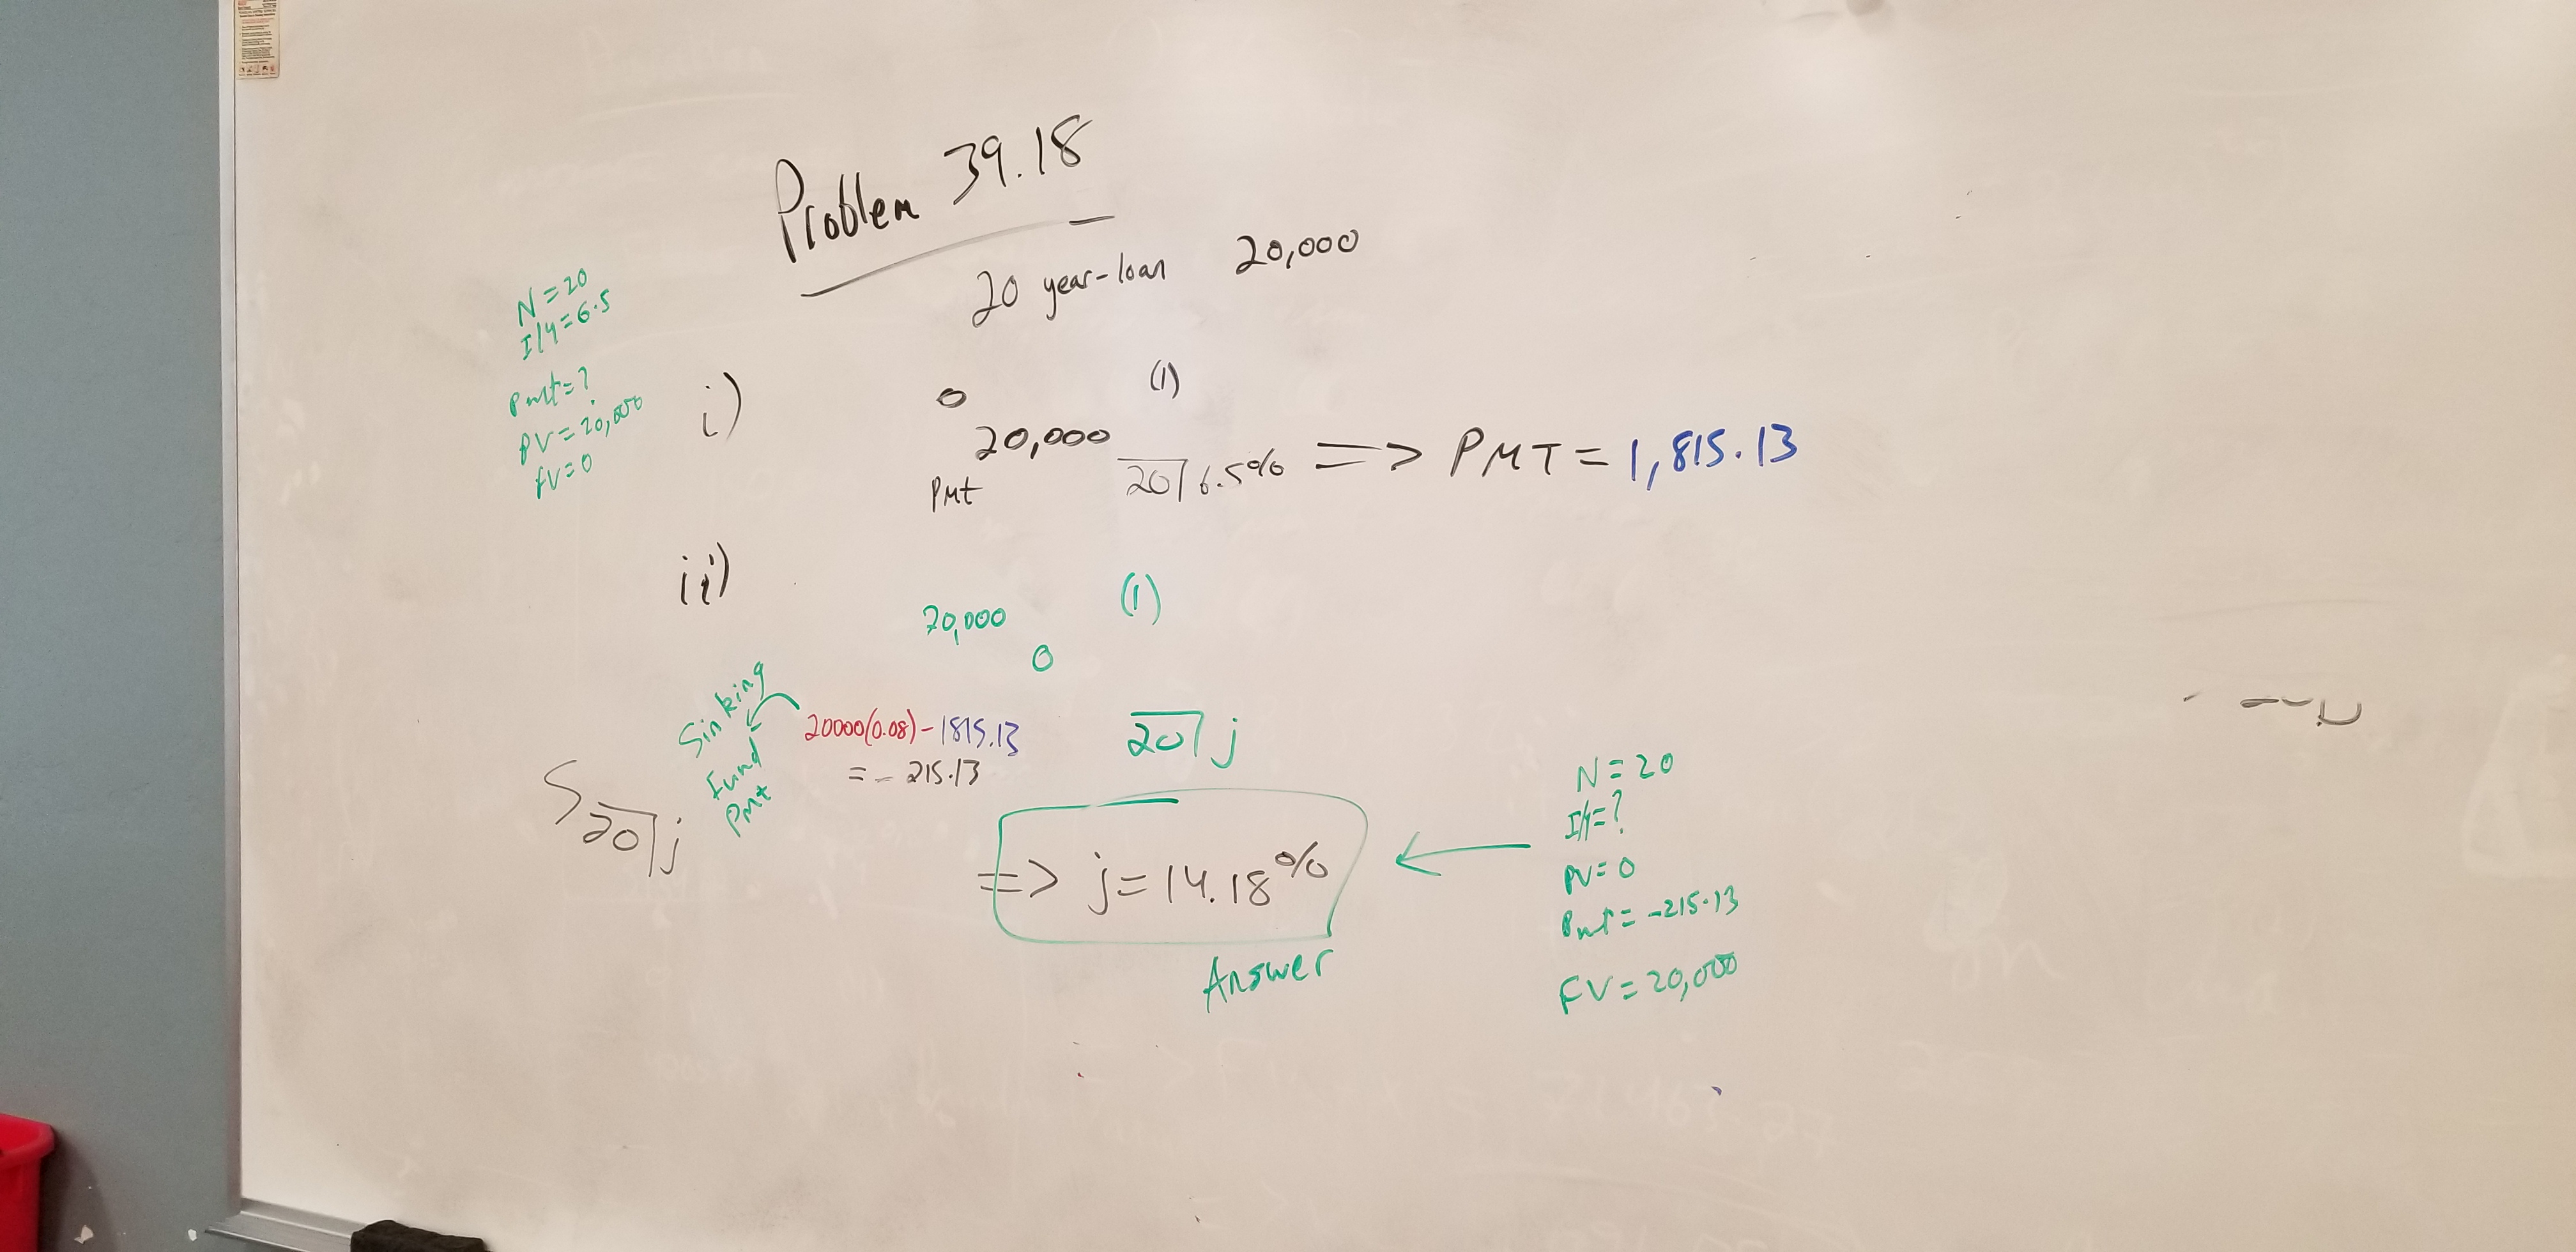 Problem 39.18
20 year-loan 20,000
N=20
I/Y=6.5
Pmt=?
PV=20,000
FV=0
i)
0 (1)
20,000
Pmt 20 6.5% => PMT = 1,815.13
ii)
20,000 (1)
0
Sinking
Fund
Pmt
20000(0.08) - 1815.13
= - 215.13
20 j
S 20 j
=> j = 14.18%
Answer
N=20
I/Y=?
PV=0
Pmt= -215.13
FV=20,000